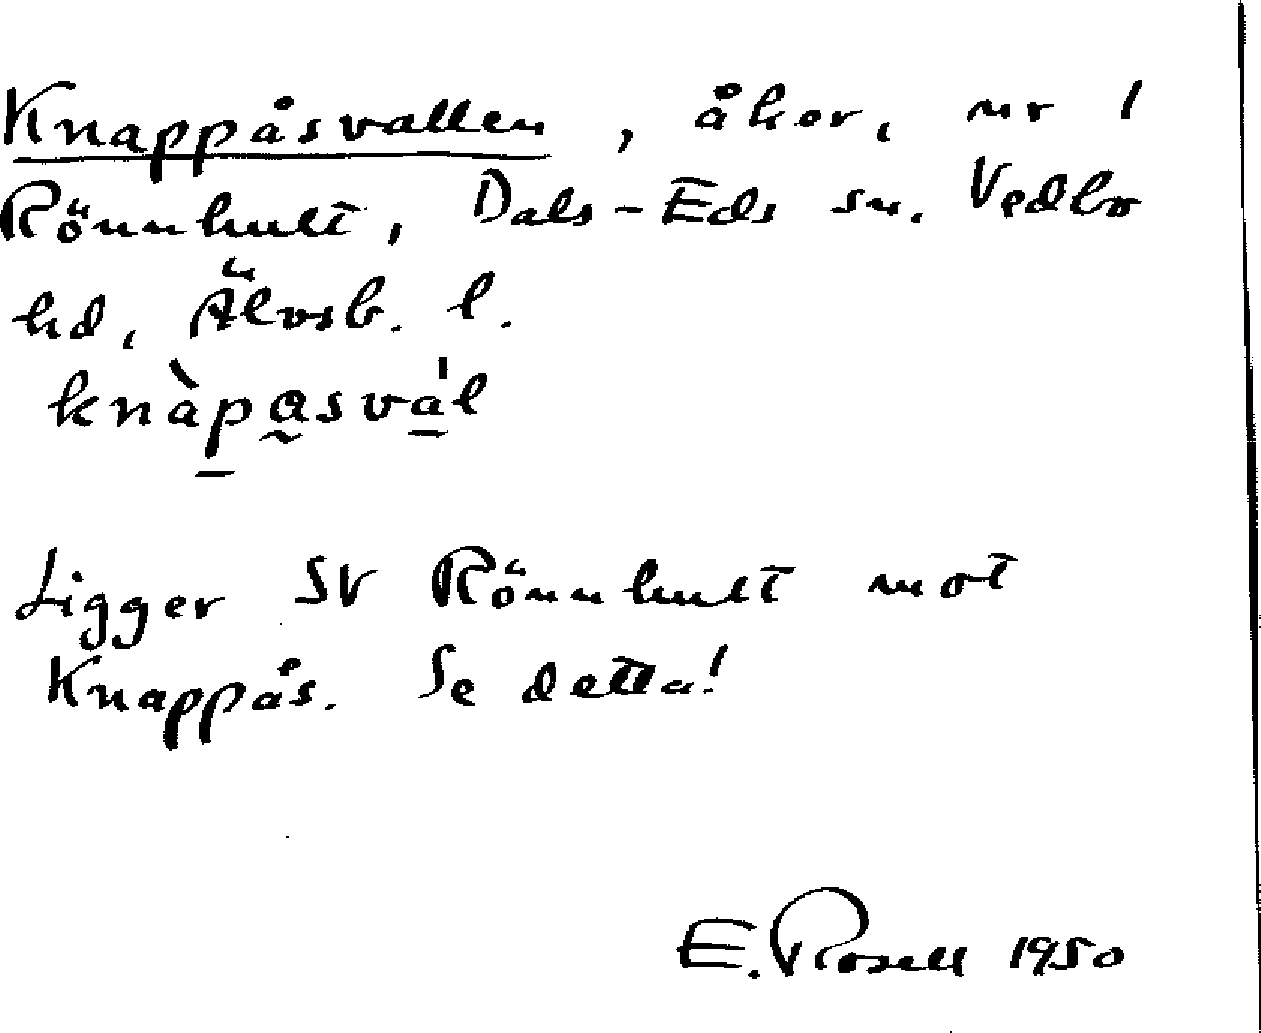 Knappåsvallen, åker, nr 1
Rönnhult, Dals-Eds sn. Vedbo
hd, Älvsb. l.
knàpa̰sva̍l
Ligger SV Rönnhult mot
Knappås. Se detta!
E. Rosell 1950